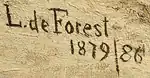 L. de Forest
1879/86